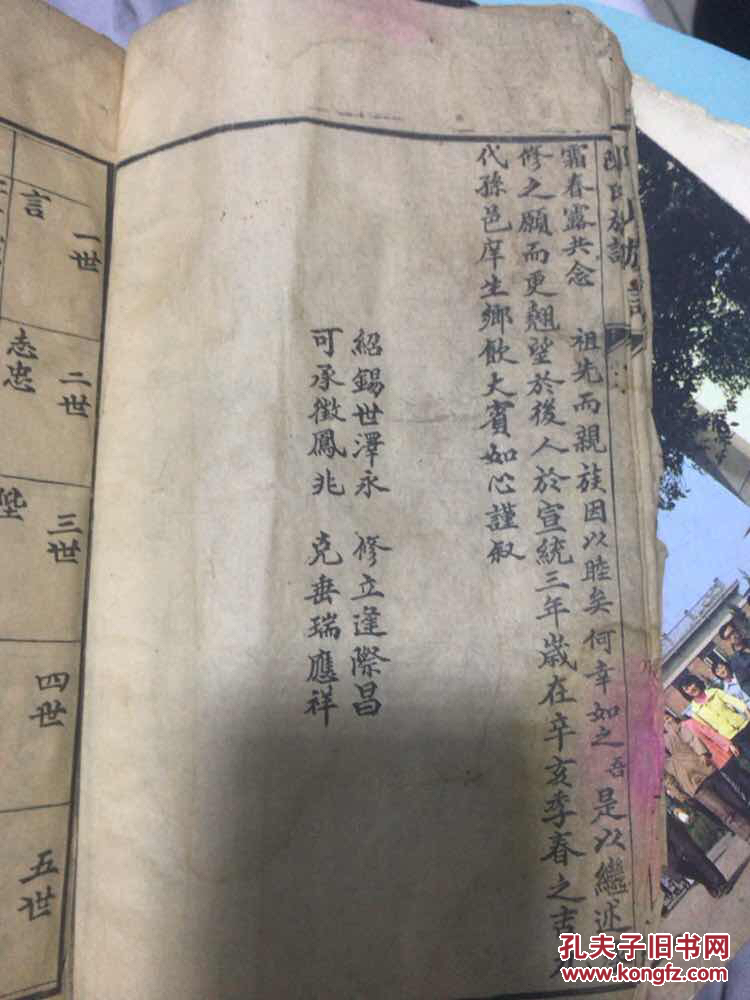 氏族譜
霜春露共念 祖先而親族因以睦矣何幸如之吾是以繼述
修之願而更翹望於後人於宣統三年歲在辛亥季春之吉
代孫邑庠生鄉飲大賓如心謹叙
紹錫世澤永 修立逢際昌
可承徵鳳兆 克垂瑞應祥
一世
言
二世
志忠
三世
陞
四世
五世
孔夫子旧书网
kongfz.com